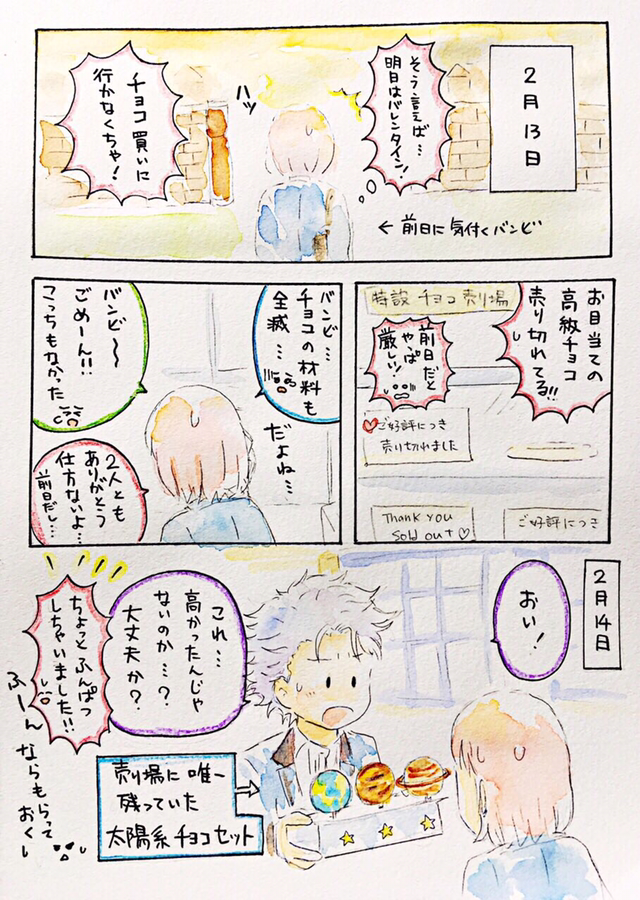 2月13日
そう言えば…
明日はバレンタイン!
ハッ
チョコ買いに
行かなくちゃ!
← 前日に気付くバンビ
お目当ての
高級チョコ
売り切れてる!!
特設 チョコ 売り場
前日だと
やっぱ
厳しい!
ご好評につき
売り切れました
Thank you
Sold out
ご好評につき
バンビ…
チョコの材料も
全滅…
だよね…
バンビ〜
ごめーん!!
こっちもなかった
2人とも
ありがとう
仕方ないよ…
前日だし…
2月14日
おい!
これ…
高かったんじゃ
ないのか…?
大丈夫か?
ちょっとふんぱつ
しちゃいました!!
ふーん
ならもらって
おくし
売り場に唯一
残っていた
太陽系チョコセット